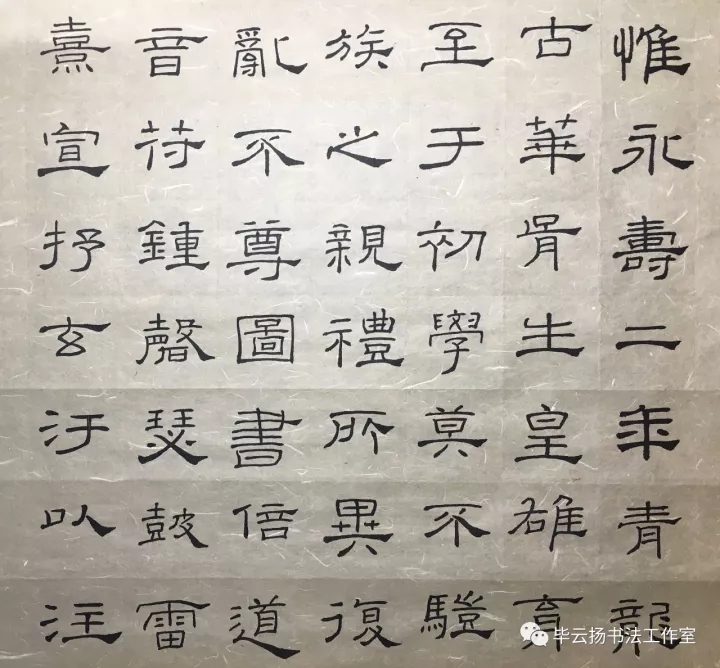 惟永壽二年青龍
古華胥生皇雄育
至于初學莫不
族之親禮所異復
亂不尊圖書倍道
音苻鍾磬瑟鼓雷
熹宣抒玄汙以注
毕云扬书法工作室